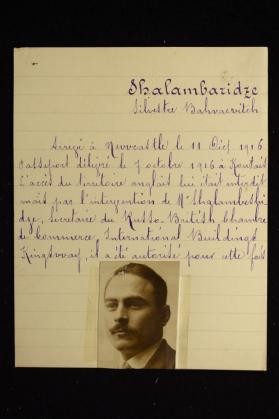 Shalambaridze
Silvestre Bahvaevitch
Arrivé à Newcastle le 11 Déc 1916
Passeport délivré le 7 octobre 1916 à Koutaïs
L'accès du territoire anglais lui était interdit
mais par l'intervention de Mr Shalambeshi
dze, secrétaire du Russo-British Chambre
de Commerce, International Buildings
Kingsway, il a été autorisé pour cette fois